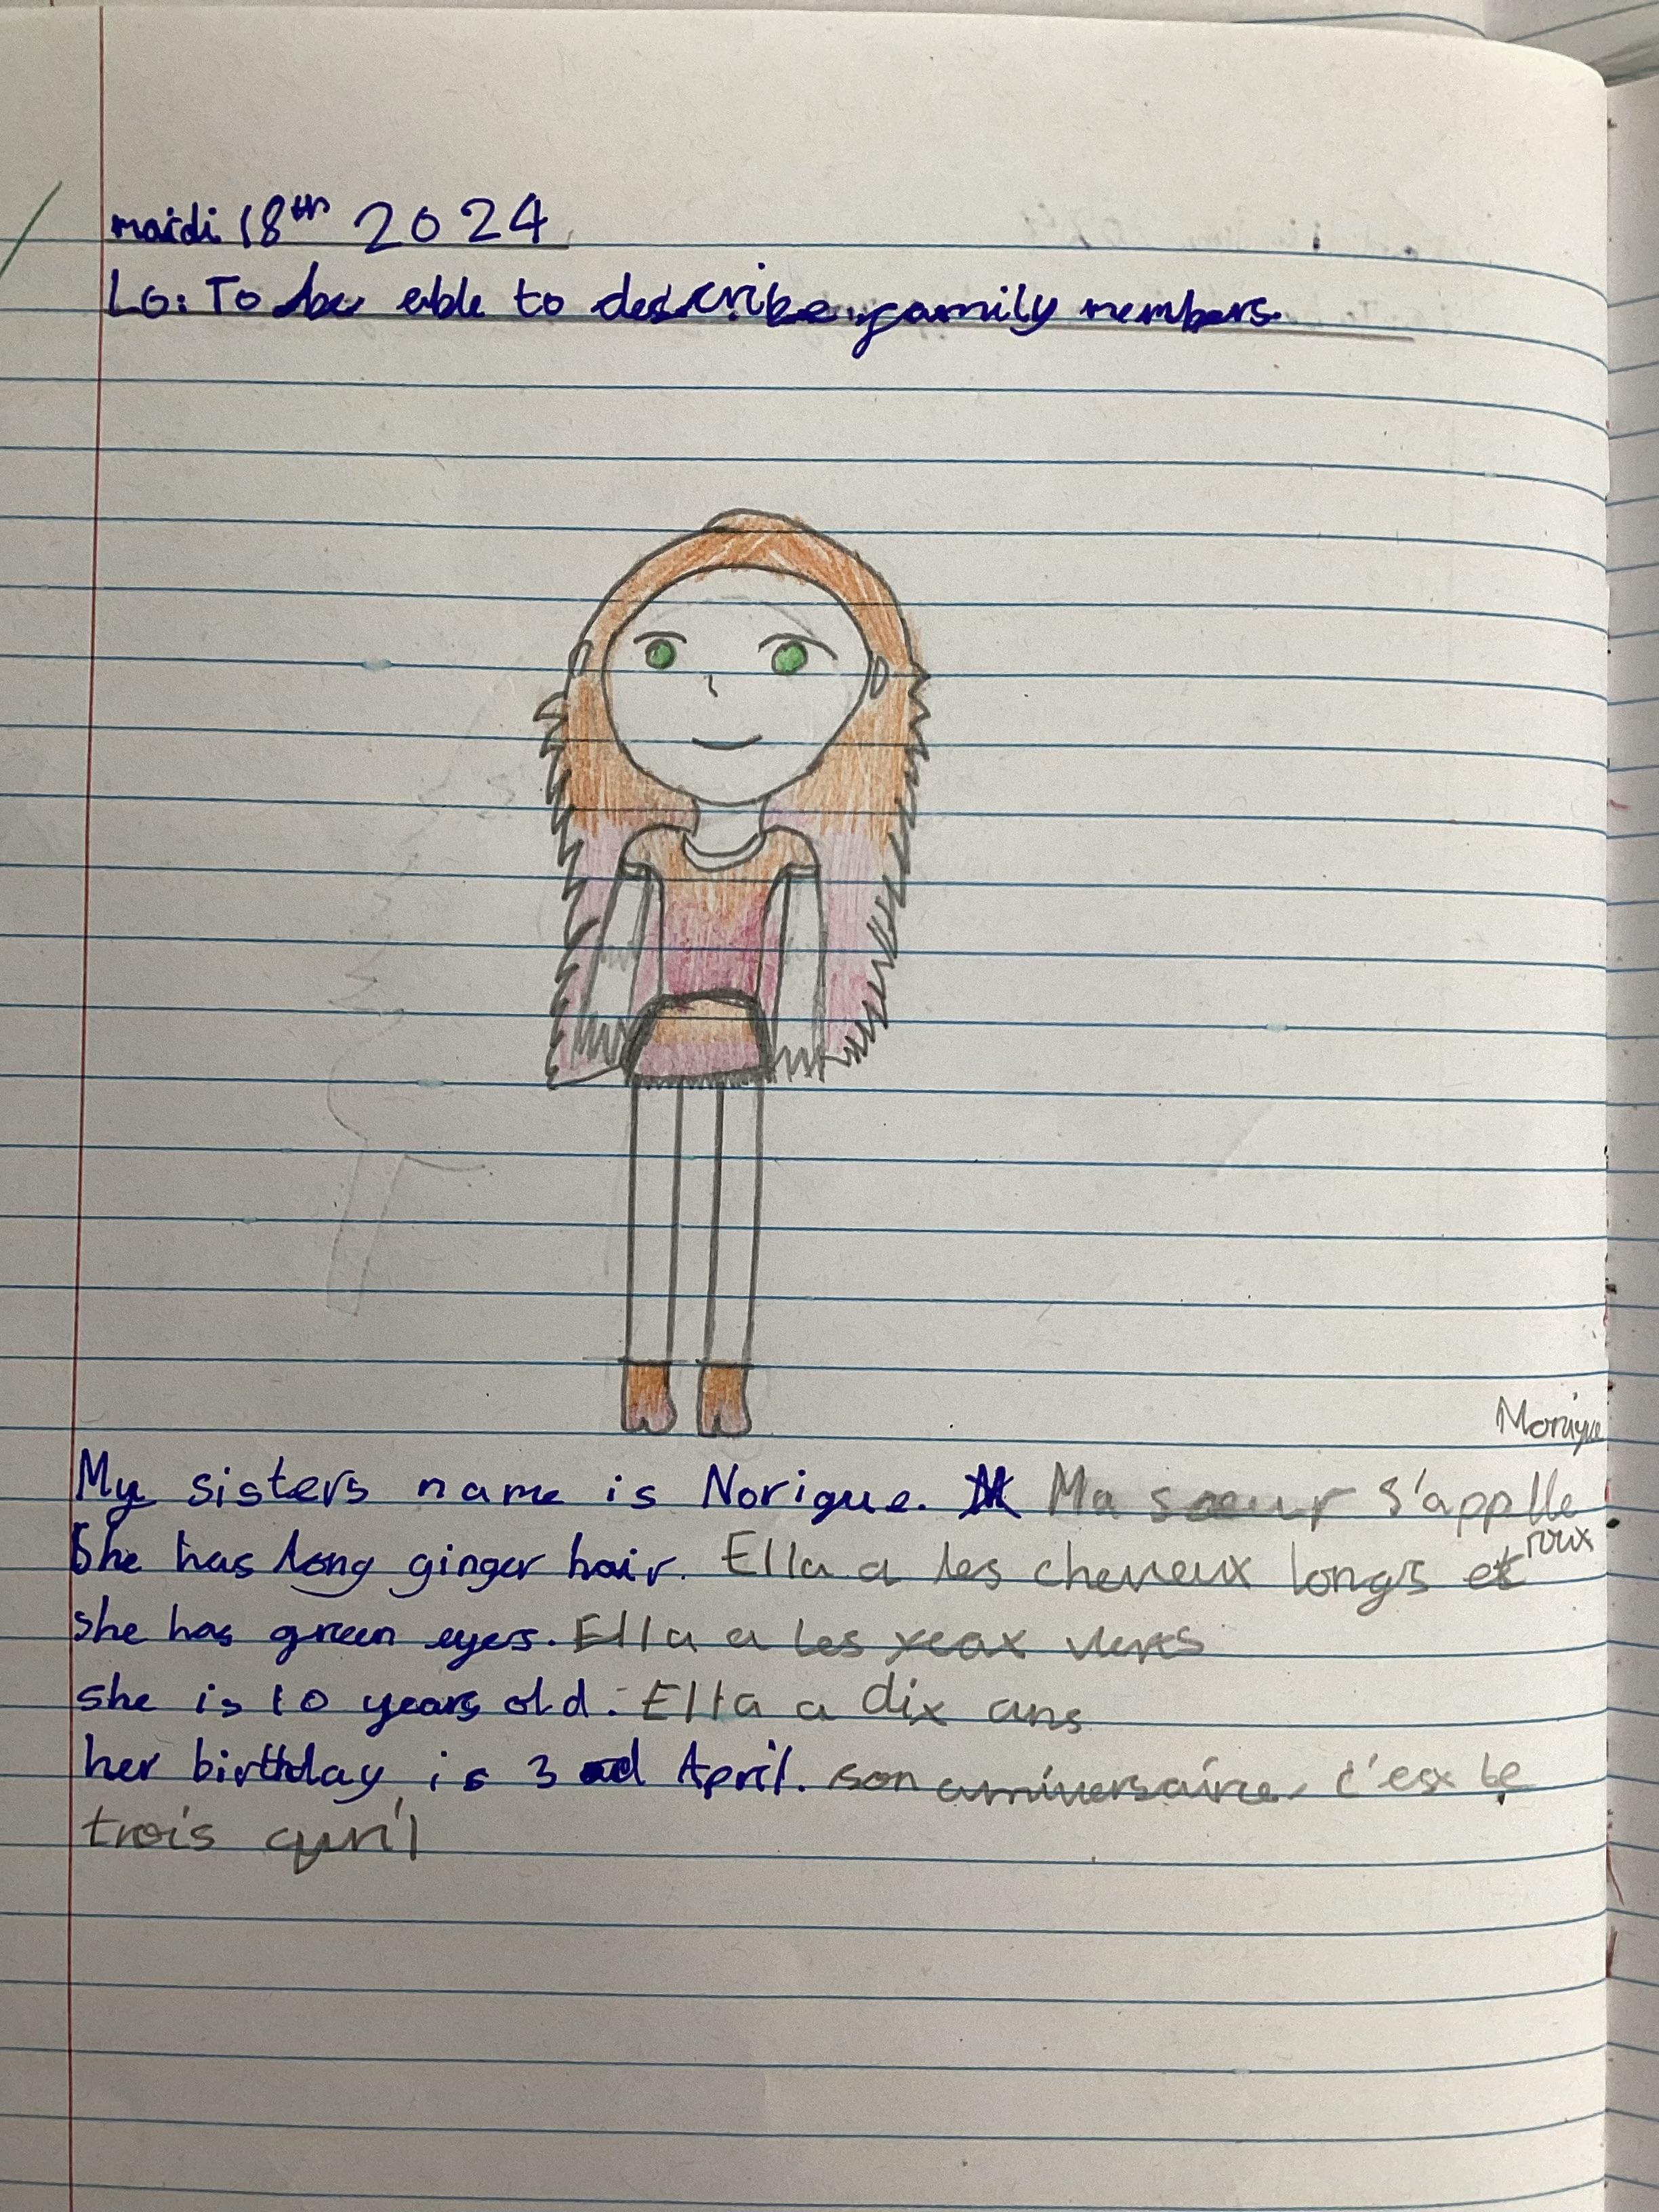 mardi 18th 2024
LO: To be able to describe family members.
Monique
My sisters name is Norique. Ma soeur s'applle
She has long ginger hair. Ella a les cheveux longs et roux
she has green eyes. Ella a les yeax verts
she is 10 years old. Ella a dix ans
her birthday is 3rd April. son anniversaire c'est le
trois avril